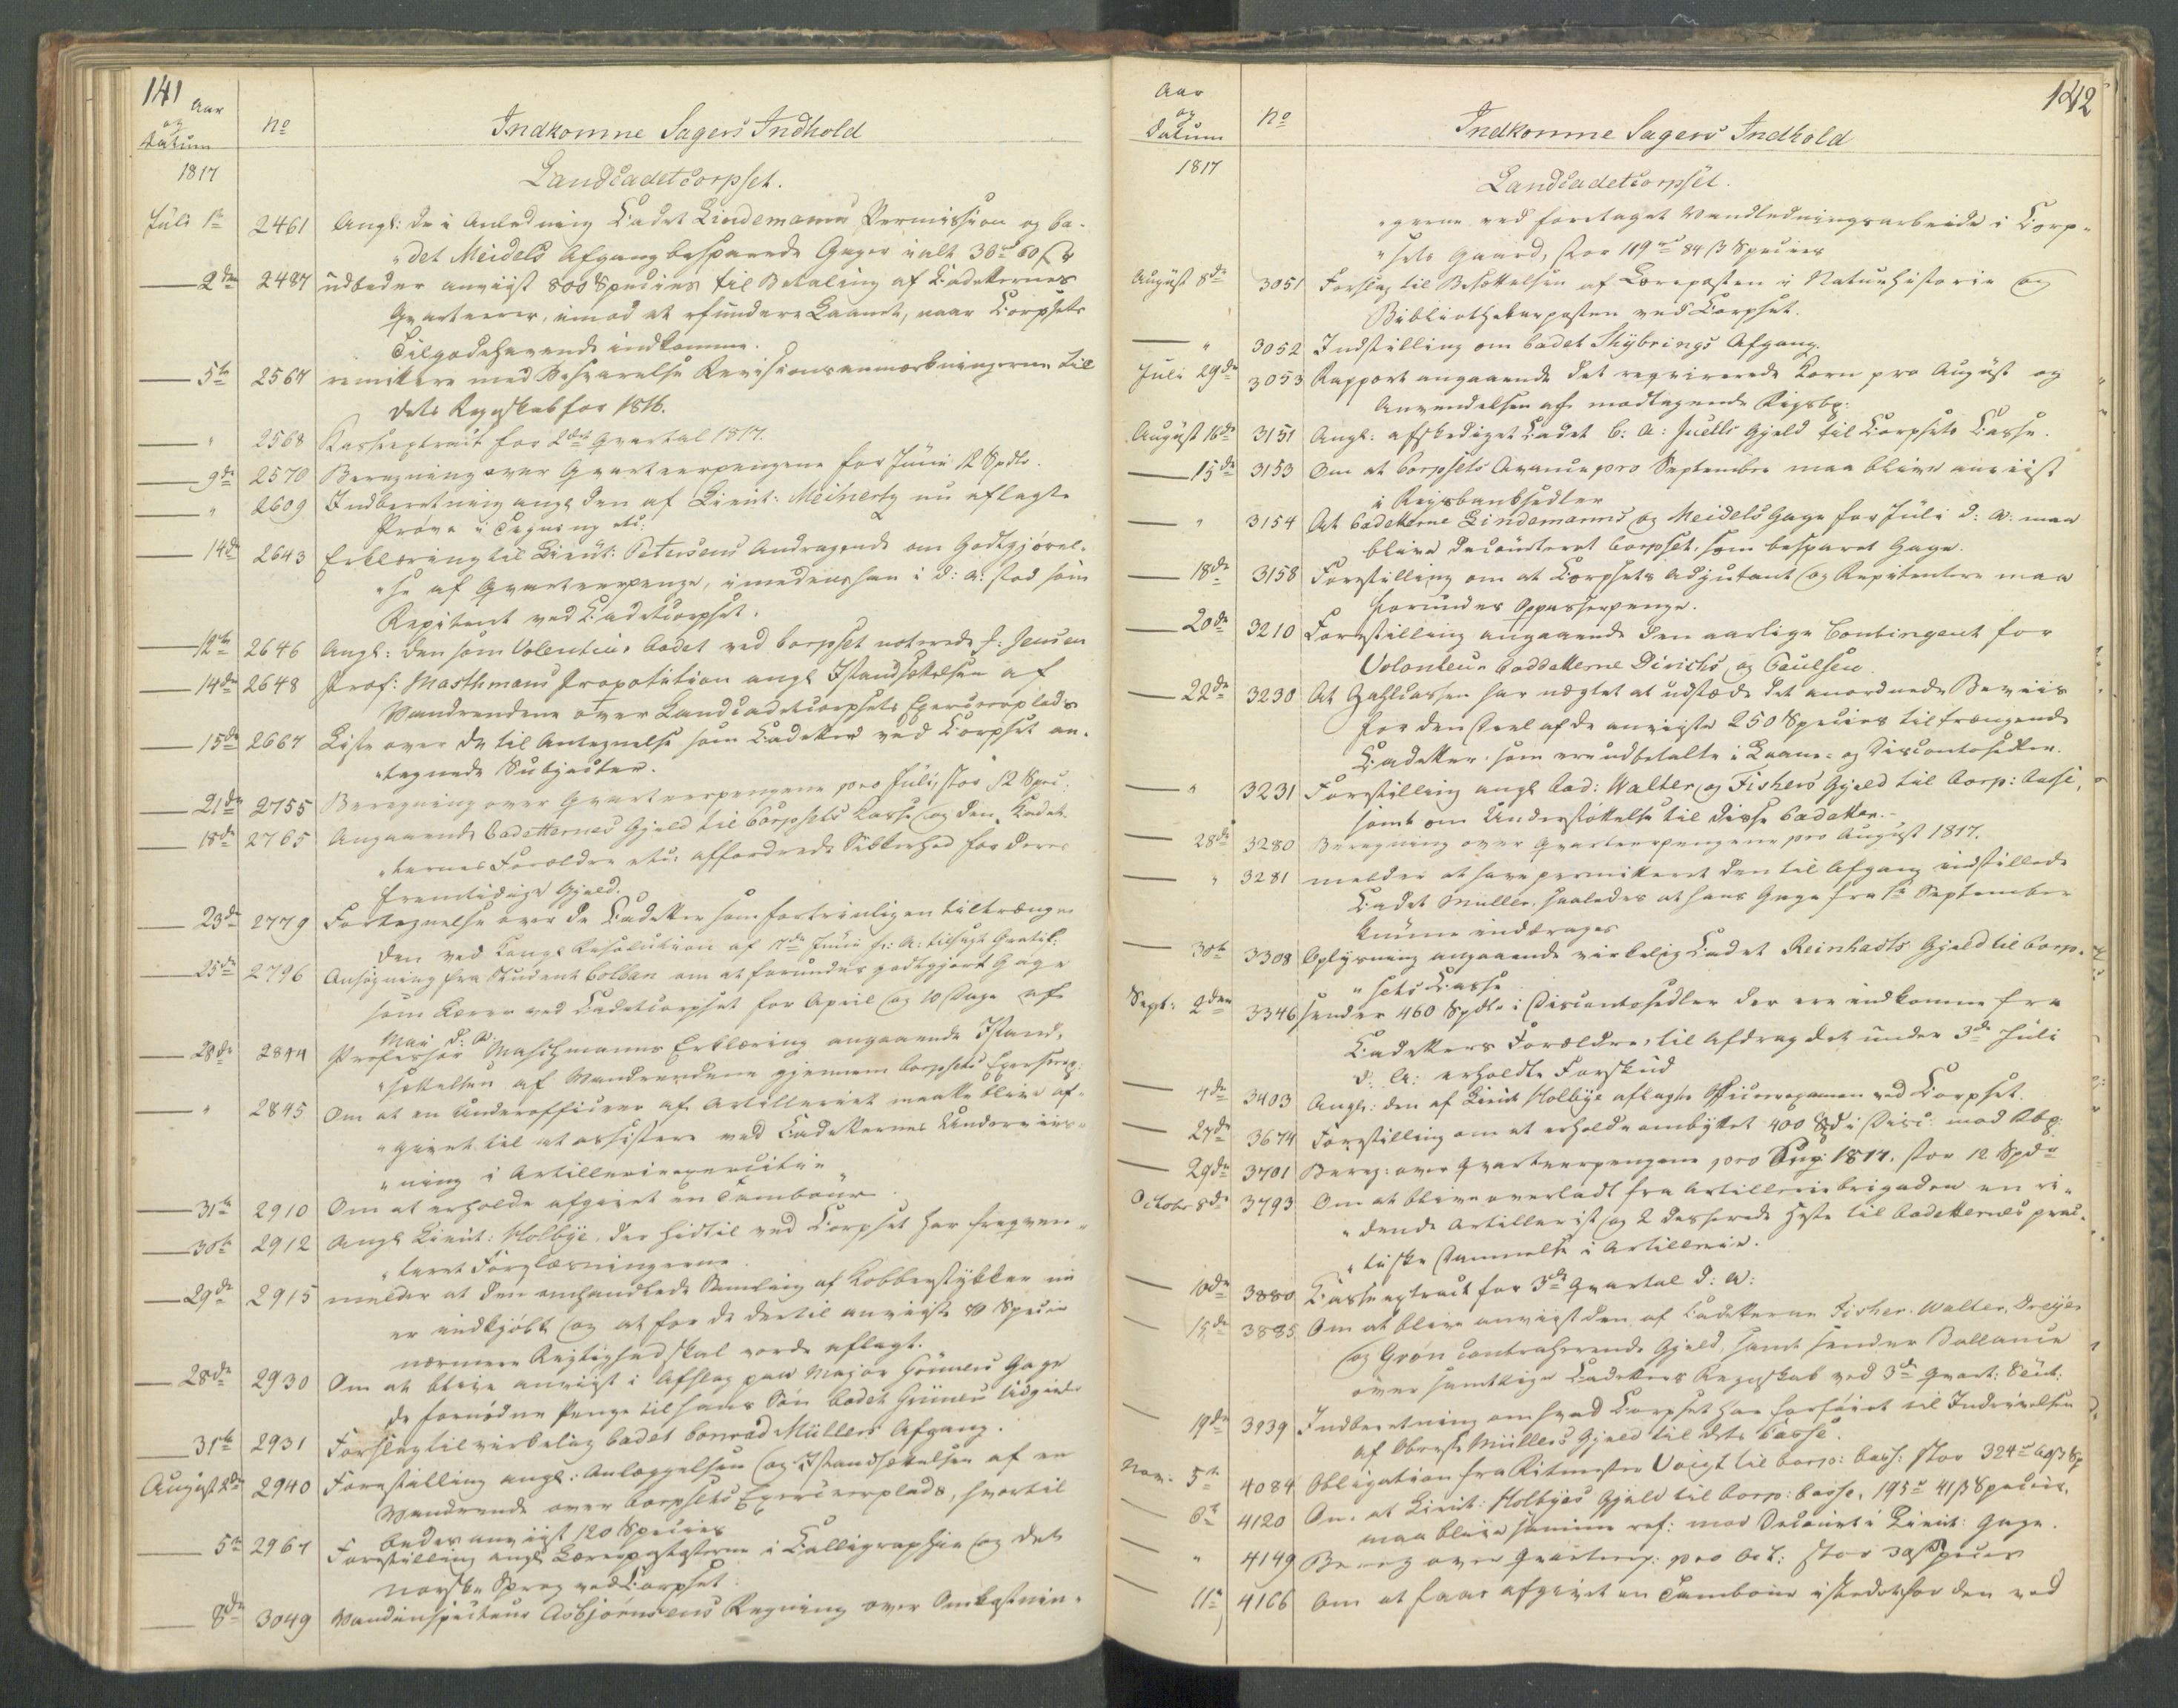 141
Aar
og
Datum
No
Indkomne Sagers Indhold
1817
Landcadetcorpset.
Juli 1ste 2461 Angl: de i Anledning Cadet Lindemanns Permission og Ca-
"det Meidels Afgang besparede Gager ialt 30
2den 2487 udbeder anviist 800 Species til Betaling af Cadetternes
Qvarterer, imod at refundere Laanet, naar Corpsets
Tilgodehavende indkomme.
5te 2567 remittere med Besvarelse Revisionsanmærkningerne til
dets Regnskab for 1816.
" 2568 Kasseextract for 2det Qvartal 1817.
9de 2570 Beregning over Qvarteerpengene for Junii 12 Spdlr.
" 2609 Indberetning angl den af Lieut: Meinertz nu aflagte
Prøve i Tegning etc.
14de 2643 Erklæring til Lieut: Petersens Andragende om Godtgjørel-
"se af Qvarteerpenge, imedens han i d: A: stod som
Repetent ved Cadetcorpset.
12te 2646 Angl: den som Volentair Cadet ved Corpset noterede J: Jensen
14de 2648 Prof: Masthmans Propotition angl Istandsættelsen af
Vandrendene over Landcadetcorpsets Exerceerplads
15de 2667 Liste over de til Antegnelse som Cadetter ved Corpset an-
"tegnede Subjecter.
21de 2755 Beregning over Qvarteerpengene pro Juli, stor 12 Spec:
18de 2765 Angaaende Cadetternes Gjeld til Corpsets Casse og den, Cadet-
"ternes Forældre etc: affordrede Sikkerhed for deres
fremtidige Gjeld.
23de 2779 Fortegnelse over de Cadetter som fortrinligen tiltrænger
den ved Kongl Resolution af 17de Junii f: A: tilsagte Gratif:
25de 2796 Ansøgning fra Student Colban om at forundes godtgjort Gage
som Lærer ved Cadetcorpset for April og 10 Dage af
Mai d: A:
28de 2844 Professor Masthmanns Erklæring angaaende Istand-
"settelsen af Vandrendene gjennem Corpsets Exerceerp:
" 2845 Om at en Underofficeer af Artilleriet maatte blive af-
"givet til at assistere ved Cadetternes Underviis-
"ning i Artillerieexercitie
31te 2910 Om at erholde afgivet en Tambour
30te 2912 Angl Lieut: Holbye, der hidtil ved Corpset har freqven-
"teret Forelæsningerne
29de 2915 melder at den omhandlede Samling af Kobberstykker nu
er indkjøbt og at for de dertil anviiste 80 Species
nærmere Rigtighed skal vorde aflagt.
28de 2930 Om at blive anviist i Afslag paa Major Grüners Gage
de fornødne Penge til hans Søn Cadet Grüners Udgivter
31te 2931 Forslag til virkelig Cadet Conrad Müllers Afgang.
August 2den 2940 Forestilling angl: Anlæggelsen og Istandsættelsen af en
Vandrende over Corpsets Exerceerplads, hvortil
bedes anviist 120 Species
5te 2967 Forestilling angl Lærerposterne i Calligraphie og det
norske Sprog ved Corpset.
8de 3049 Vandinspecteur Asbjørnsens Regning over Omkostnin-
142
Aar
og
Datum
No
Indkomne Sagers Indhold
1817
Landcadetcorpset.
"gerne ved foretaget Vandledningsarbeide i Corp-
"sets Gaard, stor 119 84 ß Species
August 8de 3051 Forslag til Besættelsen af Lærerposten i Naturhistorie og
Bibliothekarposten ved Corpset.
" 3052 Indstilling om Cadet Stybrings Afgang.
Juli 29de 3053 Rapport angaaende det reqvirerede Korn pro August og
Anvendelsen af modtagende Rigsbp:
August 16de 3151 Angl: afskediget Cadet C: A: Juells Gjeld til Corpsets Casse.
15de 3153 Om at Corpsets Avance pro September maa blive anviist
i Rigsbanksedler
" 3154 At Cadetterne Lindemanns og Meidels Gage for Juli d: A: maa
blive decourteret Corpset, som besparet Gage.
18de 3158 Forestilling om at Corpsets Adjutant og Repetentere maa
forundes Oppasserpenge.
20de 3210 Forestilling angaaende den aarlige Contingent for
Volonteur Caddetterne Dirichs og Paulsen
22de 3230 At Zahlcassen har nægtet at udstæde det anordnede Beviis
for den Deel af de anviiste 250 Species til trængende
Cadetter, som ere udbetalte i Laane- og Discontosedler.
" 3231 Forestilling angl Cad: Walter og Fishers Gjeld til Corp: Casse,
samt om Understøttelse til disse Cadetter.
28de 3280 Beregning over Qvarteerpengene pro August 1817.
" 3281 melder at have permitteret den til Afgang indstillede
Cadet Müller, saaledes at hans Gage fra 1ste September
kunne inddrages
30te 3308 Oplysning angaaende virkelig Cadet Reinhardts Gjeld til Corp-
"sets Casse
Sept: 2den 3346 sender 460 Spdlr i Discontosedler der ere indkomne fra
Cadetters Forældre, til Afdrag det under 3de Juli
d: A: erholdte Forskud
4de 3403 Angl: den af Lieut Holbye aflagte Officeerexamen ved Corpset.
27de 3674 Forestilling om at erholde ombyttet 400 Spd i Disc: mod Rbp:
29de 3701 Bereg: over Qvarteerpengene pro Sep: 1817. stor 12 Spdr
October 8de 3793 Om at blive overladt fra Artilleriebrigaden en ri-
"dende Artillerist og 2 dresserede Heste til Cadetternes prac-
"tiske Dannelse i Artillerie.
10de 3880 Casseextract for 3de Qvartal d: A:
15de 3885 Om at blive anviist den af Cadetterne Fisher, Walter, Dreyer
og Grøn contraherende Gjeld, samt sender Ballance
over samtlige Cadetters Regnskab ved 3de Qvart: Slut.
19de 3939 Indberetning om hvad Corpset har forføiet til Inddrivelsen
af Oberst Müllers Gjeld til dets Casse.
Nov. 5te 4084 Obligation fra Ritmester Voigt til Corp: Casse: stor 324
6te 4120 Om at Lieut: Holbyes Gjeld til Corp: Casse, 195 41 ß Species,
maa blive samme ref: mod Decourt i Lieut: Gage.
" 4149 Bereg over Qvarteerp: pro Oct: stor
11te 4166 Om at faae afgivet en Tambour istedetfor den ved